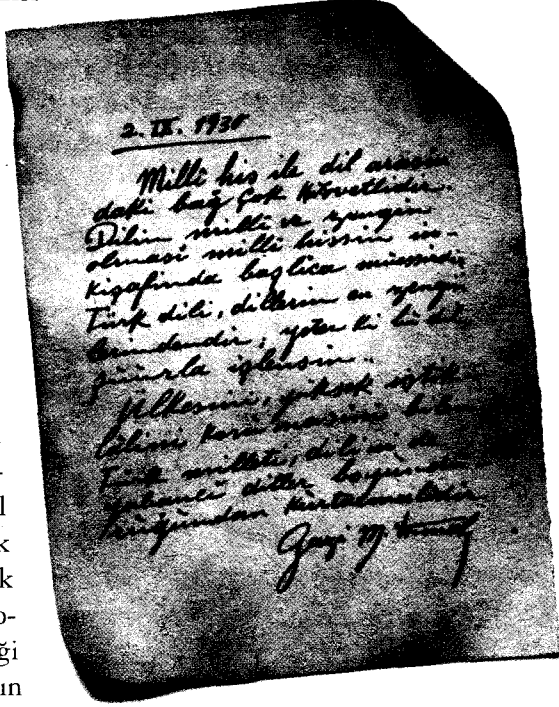 2. IX. 1930
Milli his ile dil arasın
daki bağ çok kuvvetlidir.
Dilin milli ve zengin
olması milli hissin in-
kişafında başlıca müessirdir
Türk dili, dillerin en zengin
lerindendir, yeter ki bu dil
şuurla işlensin..
Ülkesini, yüksek istik-
lâlini korumasını bilen
Türk milleti, dilini de
yabancı diller boyundu
ruğundan kurtarmalıdır
Gazi M. Kemal
l
k
k
o-
ği
ın